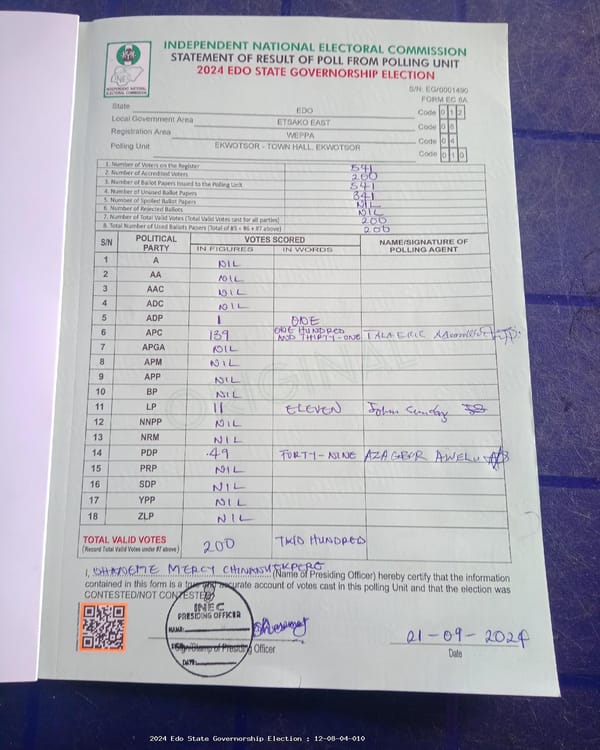 INDEPENDENT NATIONAL ELECTORAL COMMISSION
STATEMENT OF RESULT OF POLL FROM POLLING UNIT
2024 EDO STATE GOVERNORSHIP ELECTION
INEC
INDEPENDENT NATIONAL ELECTORAL COMMISSION
S/N: EG/0001490
FORM EC 8A
State EDO Code 1 2
Local Government Area ETSAKO EAST Code 0 8
Registration Area WEPPA Code 0 4
Polling Unit EKWOTSOR - TOWN HALL, EKWOTSOR Code 0 1 0
1. Number of Voters on the Register 541
2. Number of Accredited Voters 200
3. Number of Ballot Papers Issued to the Polling Unit 541
4. Number of Unused Ballot Papers 341
5. Number of Spoiled Ballot Papers NIL
6. Number of Rejected Ballots NIL
7. Number of Total Valid Votes (Total Valid Votes cast for all parties) 200
8. Total Number of Used Ballots Papers (Total of #5 + #6 + #7 above) 200
S/N POLITICAL PARTY VOTES SCORED NAME/SIGNATURE OF POLLING AGENT
IN FIGURES IN WORDS
1 A NIL
2 AA NIL
3 AAC NIL
4 ADC NIL
5 ADP 1 ONE
6 APC 139 ONE HUNDRED AND THIRTY-ONE TALA ERIC
7 APGA NIL
8 APM NIL
9 APP NIL
10 BP NIL
11 LP 11 ELEVEN John Sunday
12 NNPP NIL
13 NRM NIL
14 PDP 49 FORTY-NINE AZAGBOR AWELU
15 PRP NIL
16 SDP NIL
17 YPP NIL
18 ZLP NIL
TOTAL VALID VOTES 200 TWO HUNDRED
(Record Total Valid Votes under #7 above)
I, MERCY (Name of Presiding Officer) hereby certify that the information
contained in this form is a true and accurate account of votes cast in this polling Unit and that the election was
CONTESTED/NOT CONTESTED
INEC
PRESIDING OFFICER
NAME:
Sign/Stamp of Presiding Officer
DATE:
21-09-2024
Date
2024 Edo State Governorship Election : 12-08-04-010